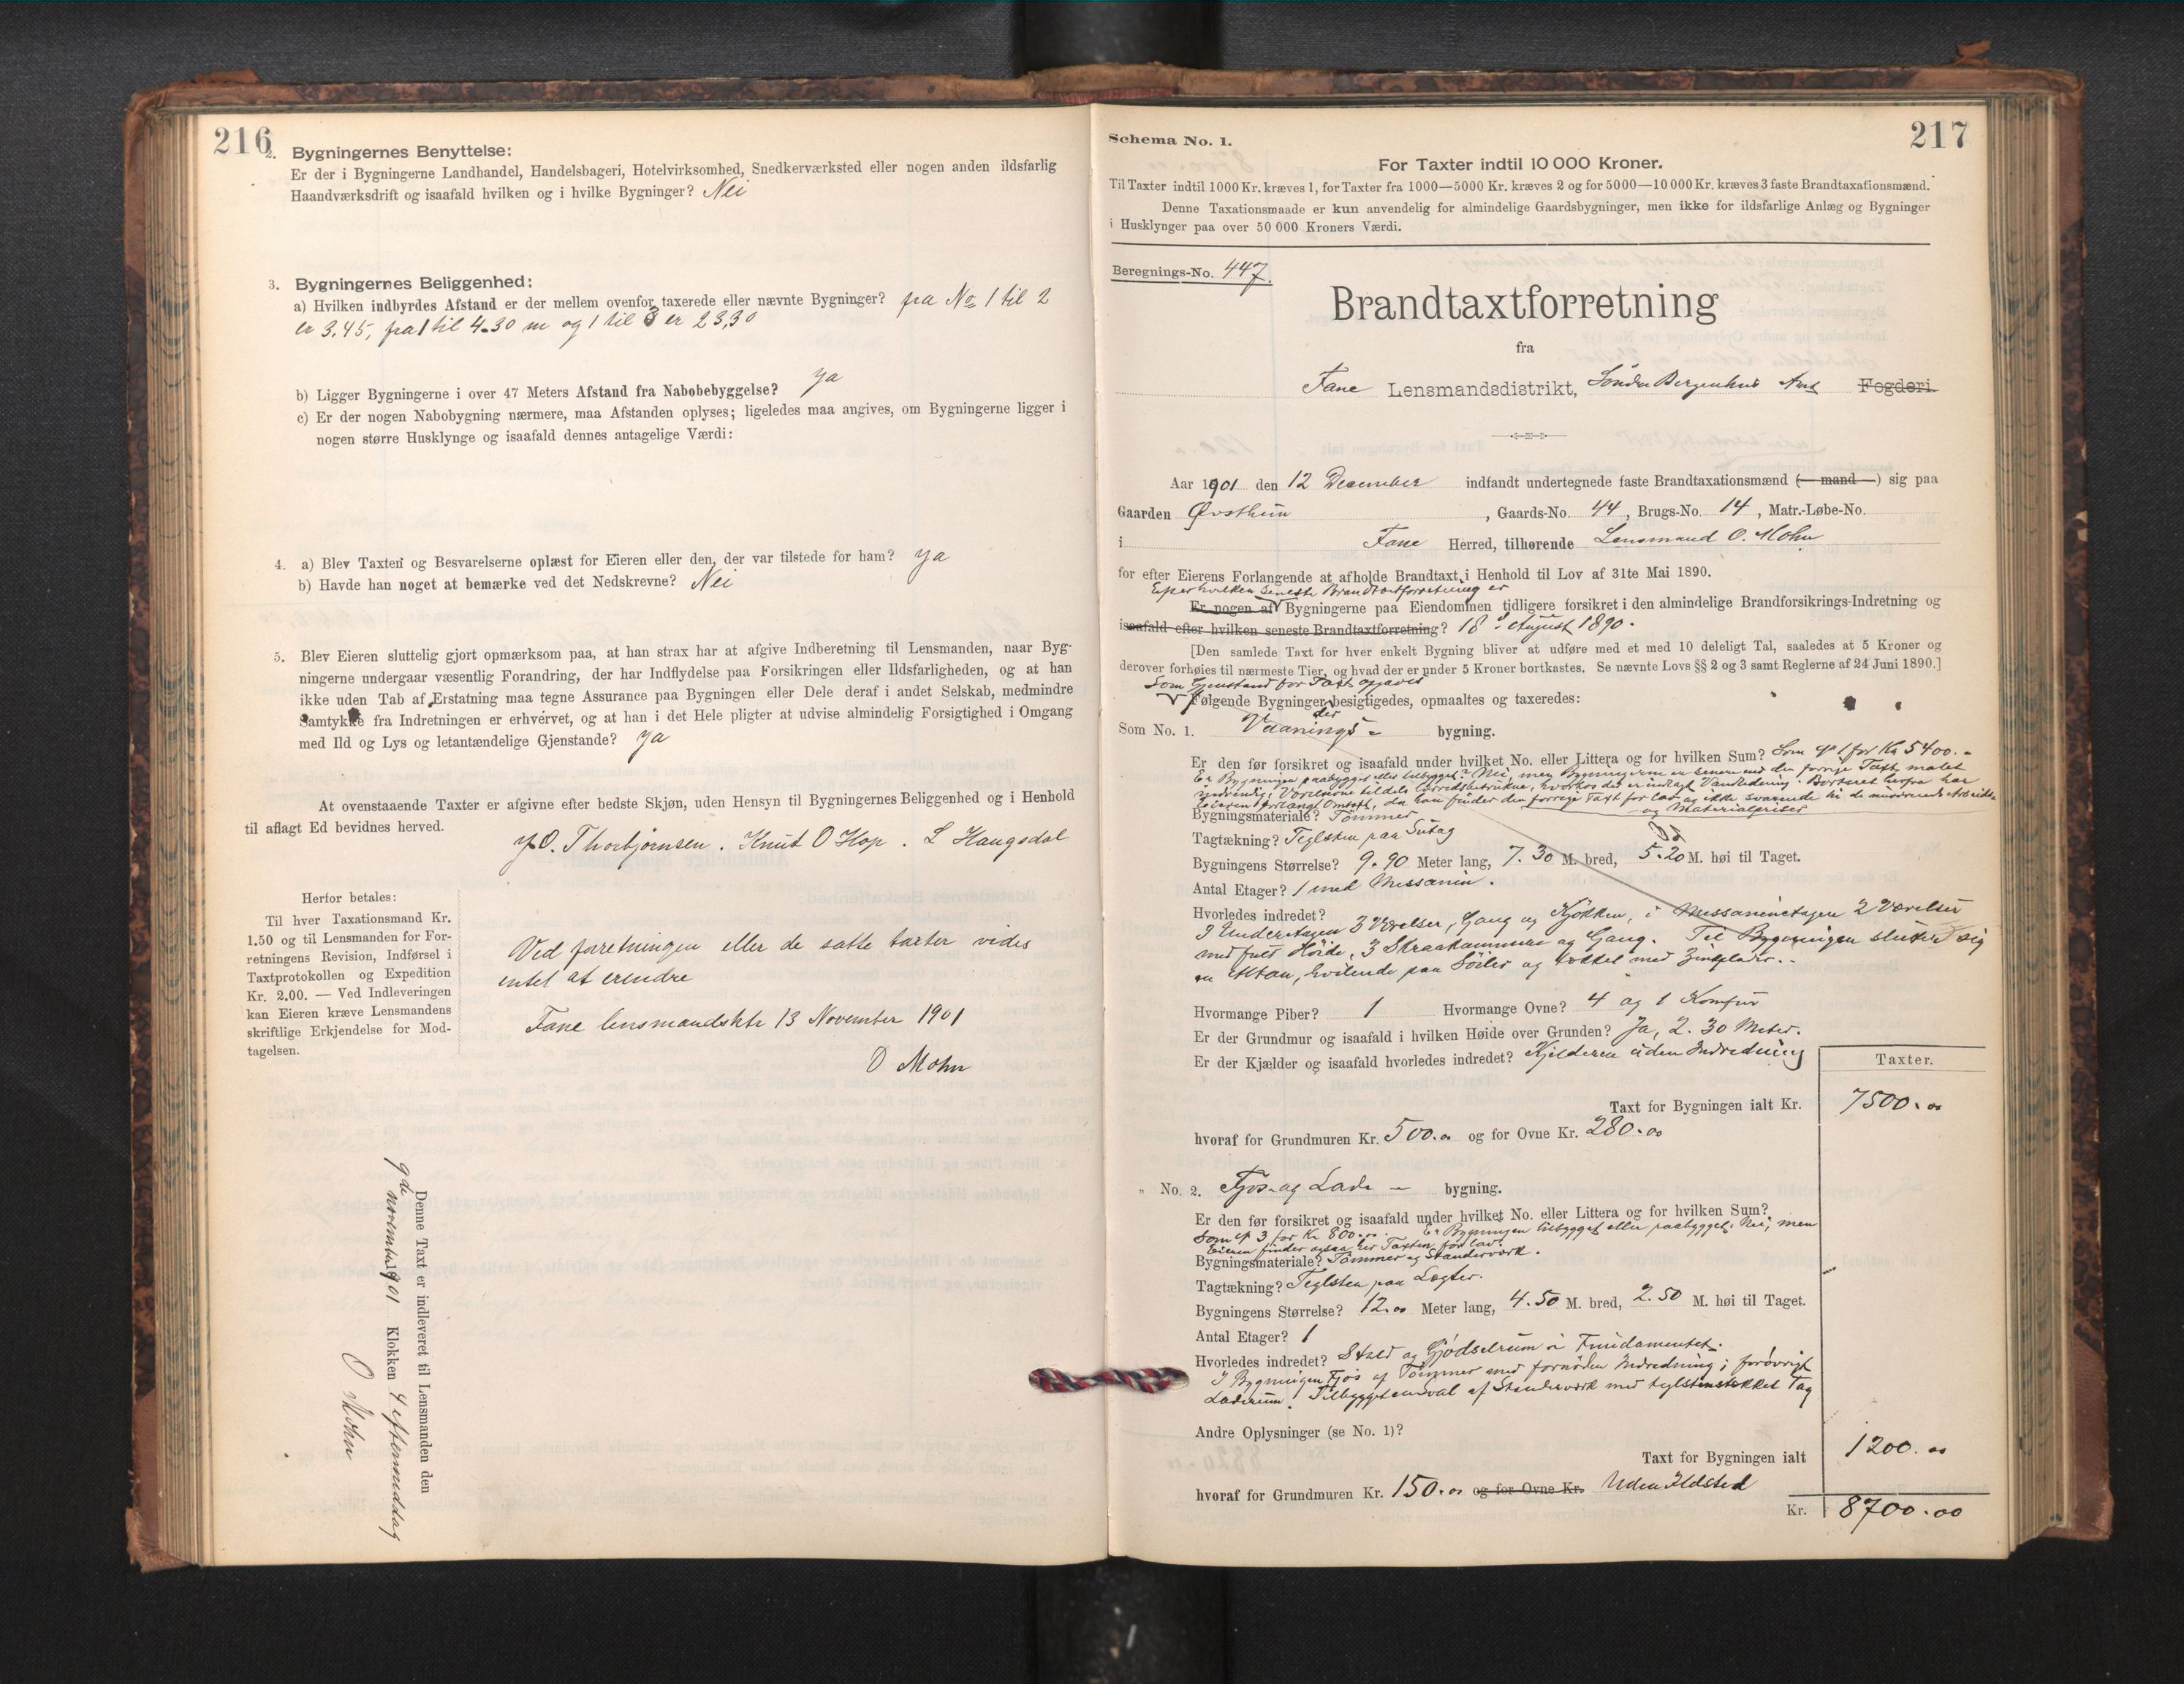 216
2. Bygningernes Benyttelse:
Er der i Bygningerne Landhandel, Handelsbageri, Hotelvirksomhed, Snedkerværksted eller nogen anden ildsfarlig
Haandværksdrift og isaafald hvilken og i hvilke Bygninger? Nei
3. Bygningernes Beliggenhed:
a) Hvilken indbyrdes Afstand er der mellem ovenfor taxerede eller nævnte Bygninger? fra No 1 til 2
er 3,45, fra 1 til 4-30 m og 1 til 3 er 23,30
b) Ligger Bygningerne i over 47 Meters Afstand fra Nabobebyggelse? Ja
c) Er der nogen Nabobygning nærmere, maa Afstanden oplyses; ligeledes maa angives, om Bygningerne ligger i
nogen større Husklynge og isaafald dennes antagelige Værdi:
4. a) Blev Taxten og Besvarelserne oplæst for Eieren eller den, der var tilstede for ham? Ja
b) Havde han noget at bemærke ved det Nedskrevne? Nei
5. Blev Eieren sluttelig gjort opmærksom paa, at han strax har at afgive Indberetning til Lensmanden, naar Byg-
ningerne undergaar væsentlig Forandring, der har Indflydelse paa Forsikringen eller Ildsfarligheden, og at han
ikke uden Tab af Erstatning maa tegne Assurance paa Bygningen eller Dele deraf i andet Selskab, medmindre
Samtykke fra Indretningen er erhvervet, og at han i det Hele pligter at udvise almindelig Forsigtighed i Omgang
med Ild og Lys og letantændelige Gjenstande? Ja
At ovenstaaende Taxter er afgivne efter bedste Skjøn, uden Hensyn til Bygningernes Beliggenhed og i Henhold
til aflagt Ed bevidnes herved.
O. Thorbjørnsen . Knut O Hop . L Haugsdal
Herfor betales:
Til hver Taxationsmand Kr.
1.50 og til Lensmanden for For-
retningens Revision, Indførsel i
Taxtprotokollen og Expedition
Kr. 2.00. — Ved Indleveringen
kan Eieren kræve Lensmandens
skriftlige Erkjendelse for Mod-
tagelsen.
Ved forretningen eller de satte taxter vides
intet at erindre
Fane lensmandsktr 13 November 1901
O Mohn
Denne Taxt er indleveret til Lensmanden den
9de november 1901 Klokken 4 eftermiddag
O Mohn
217
Schema No. 1.
For Taxter indtil 10 000 Kroner.
Til Taxter indtil 1000 Kr. kræves 1, for Taxter fra 1000—5000 Kr. kræves 2 og for 5000—10 000 Kr. kræves 3 faste Brandtaxationsmænd.
Denne Taxationsmaade er kun anvendelig for almindelige Gaardsbygninger, men ikke for ildsfarlige Anlæg og Bygninger
i Husklynger paa over 50 000 Kroners Værdi.
Beregnings-No. 447.
Brandtaxtforretning
fra
Fane Lensmandsdistrikt, Søndre Bergenhus Amt Fogderi.
Aar 1901 den 12 December indfandt undertegnede faste Brandtaxationsmænd (— mand —) sig paa
Gaarden Øvsthun, Gaards-No. 44, Brugs-No. 14, Matr.-Løbe-No.
i Fane Herred, tilhørende Lensmand O. Mohn
for efter Eierens Forlangende at afholde Brandtaxt i Henhold til Lov af 31te Mai 1890.
Efter hvilken seneste Brandtaxtforretning er
Er nogen af Bygningerne paa Eiendommen tidligere forsikret i den almindelige Brandforsikrings-Indretning og
isaafald efter hvilken seneste Brandtaxtforretning? 18 August 1890.
[Den samlede Taxt for hver enkelt Bygning bliver at udføre med et med 10 deleligt Tal, saaledes at 5 Kroner og
derover forhøies til nærmeste Tier, og hvad der er under 5 Kroner bortkastes. Se nævnte Lovs §§ 2 og 3 samt Reglerne af 24 Juni 1890.]
Som Gjenstand for Taxt opgaves
Følgende Bygninger der besigtigedes, opmaaltes og taxeredes:
Som No. 1. Vaanings- bygning.
Er den før forsikret og isaafald under hvilket No. eller Littera og for hvilken Sum? Som No 1 for Kr 5400.-
Er Bygningen paabygget eller tilbygget? Nei, men Bygningerne er senere end den forrige Taxt malet
indvendig, Værelserne tildels betrukne, hvorhos der er indlagt Vandledning. Bortseet herfra har
Eieren forlangt Omtaxt, da han finder den forrige Taxt for lav og ikke svarende til de nuværende Arbeids
og Materialpriser
Bygningsmateriale? Tømmer
Tagtækning? Teglsten paa Sutag
Bygningens Størrelse? 9.90 Meter lang, 7.30 M. bred, 5.20 M. høi til Taget.
Antal Etager? 1 med Messanin.
Hvorledes indredet?
I Underetagen 3 Værelser, Gang og Kjøkken, i Messaninetagen 2 Værelser
med fuld Høide, 3 Skraakammere og Gang. Til Bygningen slutter sig
en Altan, hvilende paa Søiler og tækket med Zinkplader.-
Hvormange Piber? 1 Hvormange Ovne? 4 og 1 Komfur
Er der Grundmur og isaafald i hvilken Høide over Grunden? Ja, 2.30 Meter.
Er der Kjælder og isaafald hvorledes indredet? Kjelderen uden Indredning
Taxter.
Taxt for Bygningen ialt Kr. 7500.00
hvoraf for Grundmuren Kr. 500.00 og for Ovne Kr. 280.00
" No. 2. Fjøs- og Lade - bygning.
Er den før forsikret og isaafald under hvilket No. eller Littera og for hvilken Sum?
Som No 3 for Kr 800.00. Er Bygningen tilbygget eller paabygget: Nei, men
Eieren finder ogsaa her Taxten for lav.
Bygningsmateriale? Tømmer og Standerværk.
Tagtækning? Teglsten paa Lægter.
Bygningens Størrelse? 12.00 Meter lang, 4.50 M. bred, 2.50 M. høi til Taget.
Antal Etager? 1
Hvorledes indredet? Stald og Gjødselrum i Fundamentet.
I Bygningen Fjøs af Tømmer med fornøden Indredning; forøvrigt
Laderum. Tilbygget en Sval af Standerværk med teglstenstækket Tag
Andre Oplysninger (se No. 1)?
Taxt for Bygningen ialt 1200.00
hvoraf for Grundmuren Kr. 150.00 og for Ovne Kr. Uden Ildsted
Kr. 8700.00